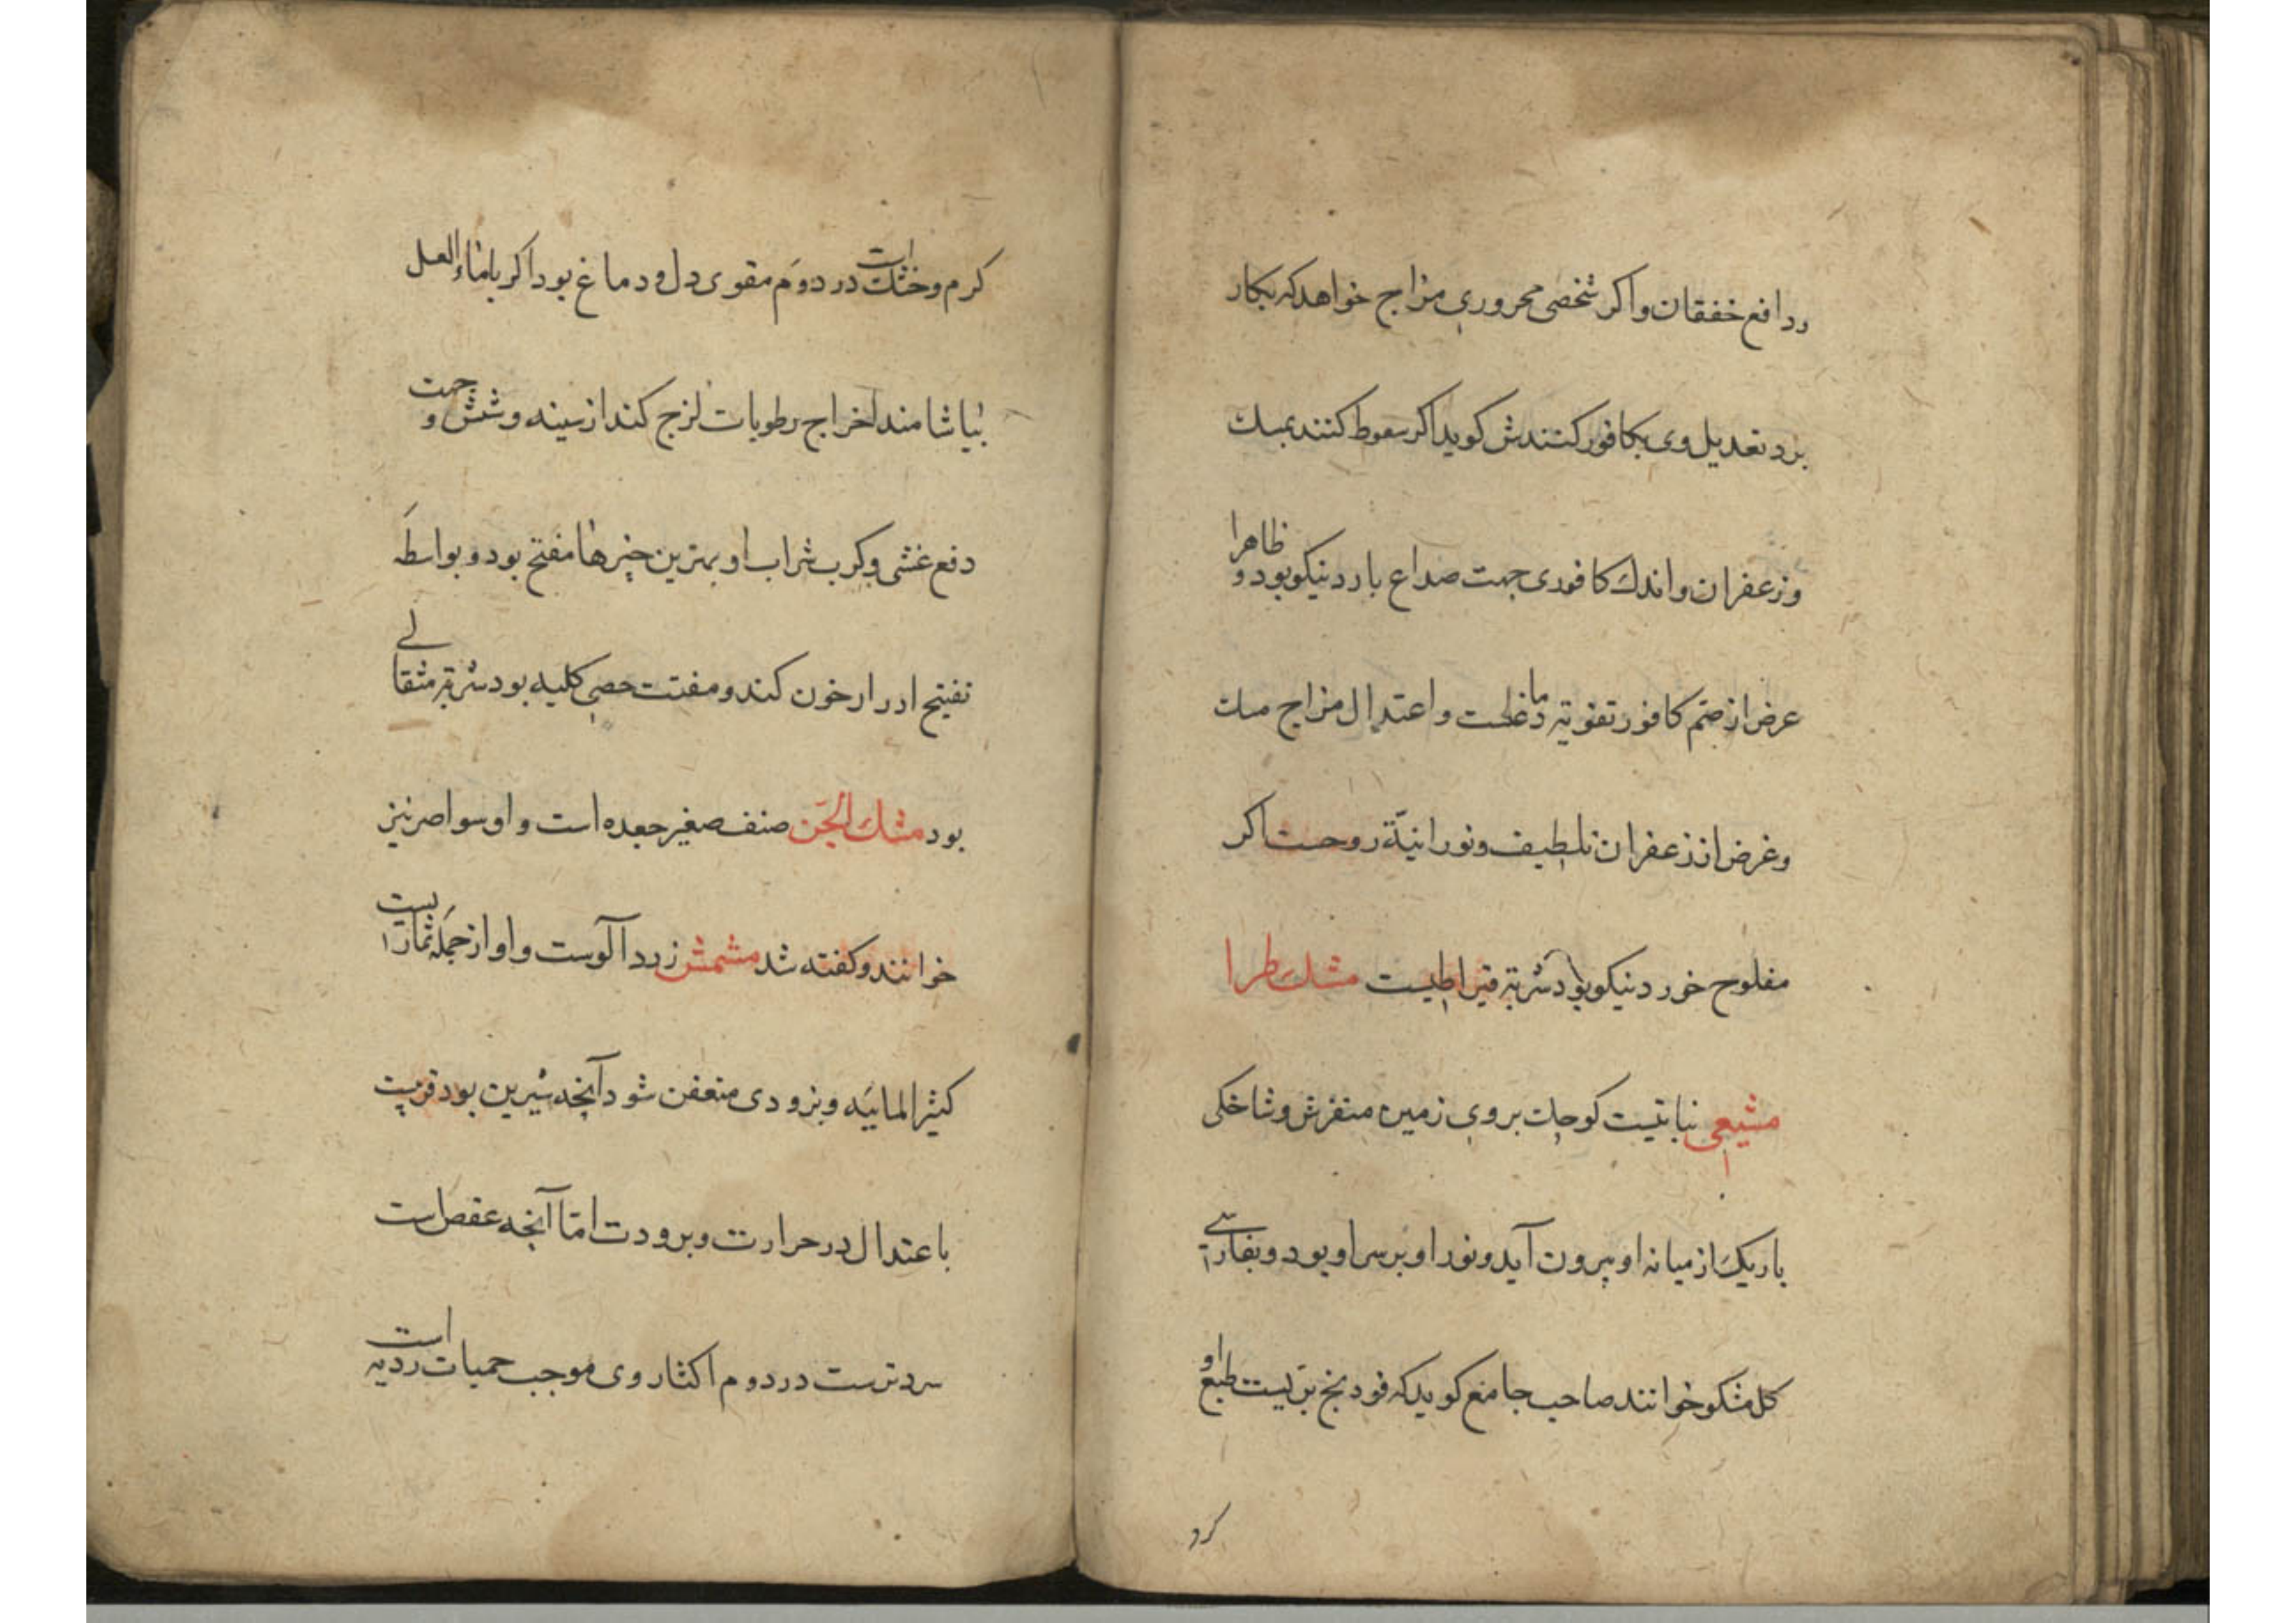 ردافع خفقان واکر شخصی محروری مزاج خواهد که بکار
برد تعدیل وی بکافور کنندش کوید اکر سعوط کنند بمسك
وزعفران واندك کافوری جهت صداع بارد نیکو بود و ظاهرا
عرض از ضم کافور تقویة دماغست و اعتدال مزاج مسك
وغرض از زعفران تلطیف ونورانیة روحست اکر
مفلوج خورد نیکو بود شربة قیراطیست مشك طرا
مشیعی نباتیست کوچك بروی زمین متفرش وشاخکی
باریك از میانه او بیرون آید ونور او بر سر او بود وبفارسی
کل مشکو خوانند صاحب جامع کوید که فودنج بریست طبع او
کرم
کرم وخشك است در دوم مقوی دل ودماغ بود اکر باماءالعسل
بیاشامند اخراج رطوبات لزج کند از سینه وشش و جهت
دفع غشی وکرب شراب او بهترین چیزها مفتح بود وبواسطه
تفتیح ادرار خون کند ومفتت حصی کلیه بود شربة مثقالے
بود مشك الجن صنف صغیر جعده است واو سواصر نیز
خوانند وکفته شد مشمش زرد آلوست واو از جمله ثماریست
کثیر المائیه وبزودی متعفن شود آنچه شیرین بود قریبست
باعتدال در حرارت وبرودت اما آنچه عفص است
سردترست در دوم اکثار وی موجب حمیات ردیه است